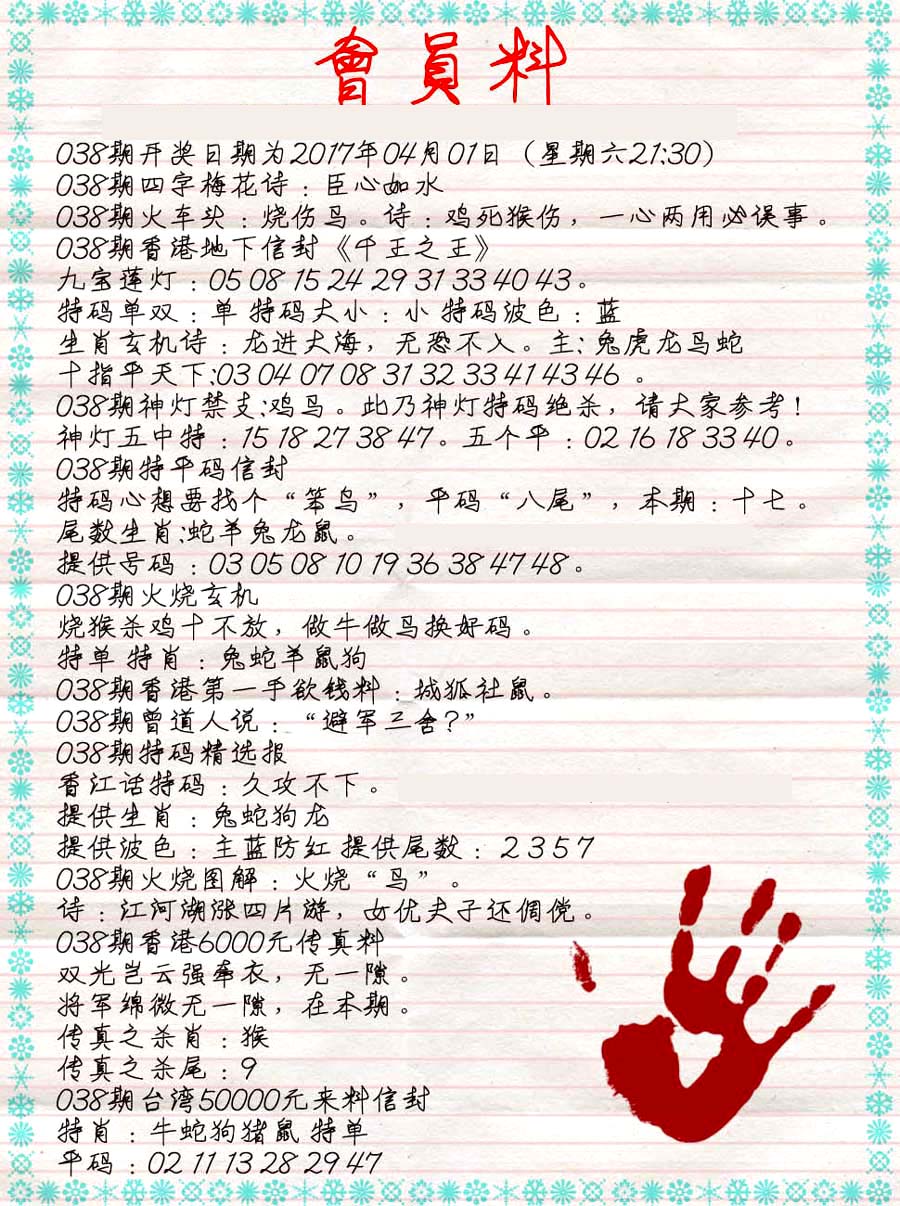 會員料
038期开奖日期为2017年04月01日（星期六21:30）
038期四字梅花诗：臣心如水
038期火车头：烧伤鸟。诗：鸡死猴伤，一心两用必误事。
038期香港地下信封《千王之王》
九宝莲灯：05 08 15 24 29 31 33 40 43。
特码单双：单 特码大小：小 特码波色：蓝
生肖玄机诗：龙进大海，无恐不入。主：兔虎龙鸟蛇
十指平天下:03 04 07 08 31 32 33 41 43 46 。
038期神灯禁支:鸡鸟。此乃神灯特码绝杀，请大家参考！
神灯五中特：15 18 27 38 47。五个平：02 16 18 33 40。
038期特平码信封
特码心想要找个“笨鸟”，平码“八尾”，本期：十七。
尾数生肖:蛇羊兔龙鼠。
提供号码：03 05 08 10 19 36 38 47 48。
038期火烧玄机
烧猴杀鸡十不放，做牛做鸟换好码。
特单 特肖：兔蛇羊鼠狗
038期香港第一手欲钱料：城狐社鼠。
038期曾道人说：“避军三舍？”
038期特码精选报
香江话特码：久攻不下。
提供生肖：兔蛇狗龙
提供波色：主蓝防红 提供尾数：2 3 5 7
038期火烧图解：火烧“鸟”。
诗：江河湖涨四片游，女优夫子还倜傥。
038期香港6000元传真料
双光岂云强牵衣，无一隙。
将军绵微无一隙，在本期。
传真之杀肖：猴
传真之杀尾：9
038期台湾50000元来料信封
特肖：牛蛇狗猪鼠 特单
平码：02 11 13 28 29 47